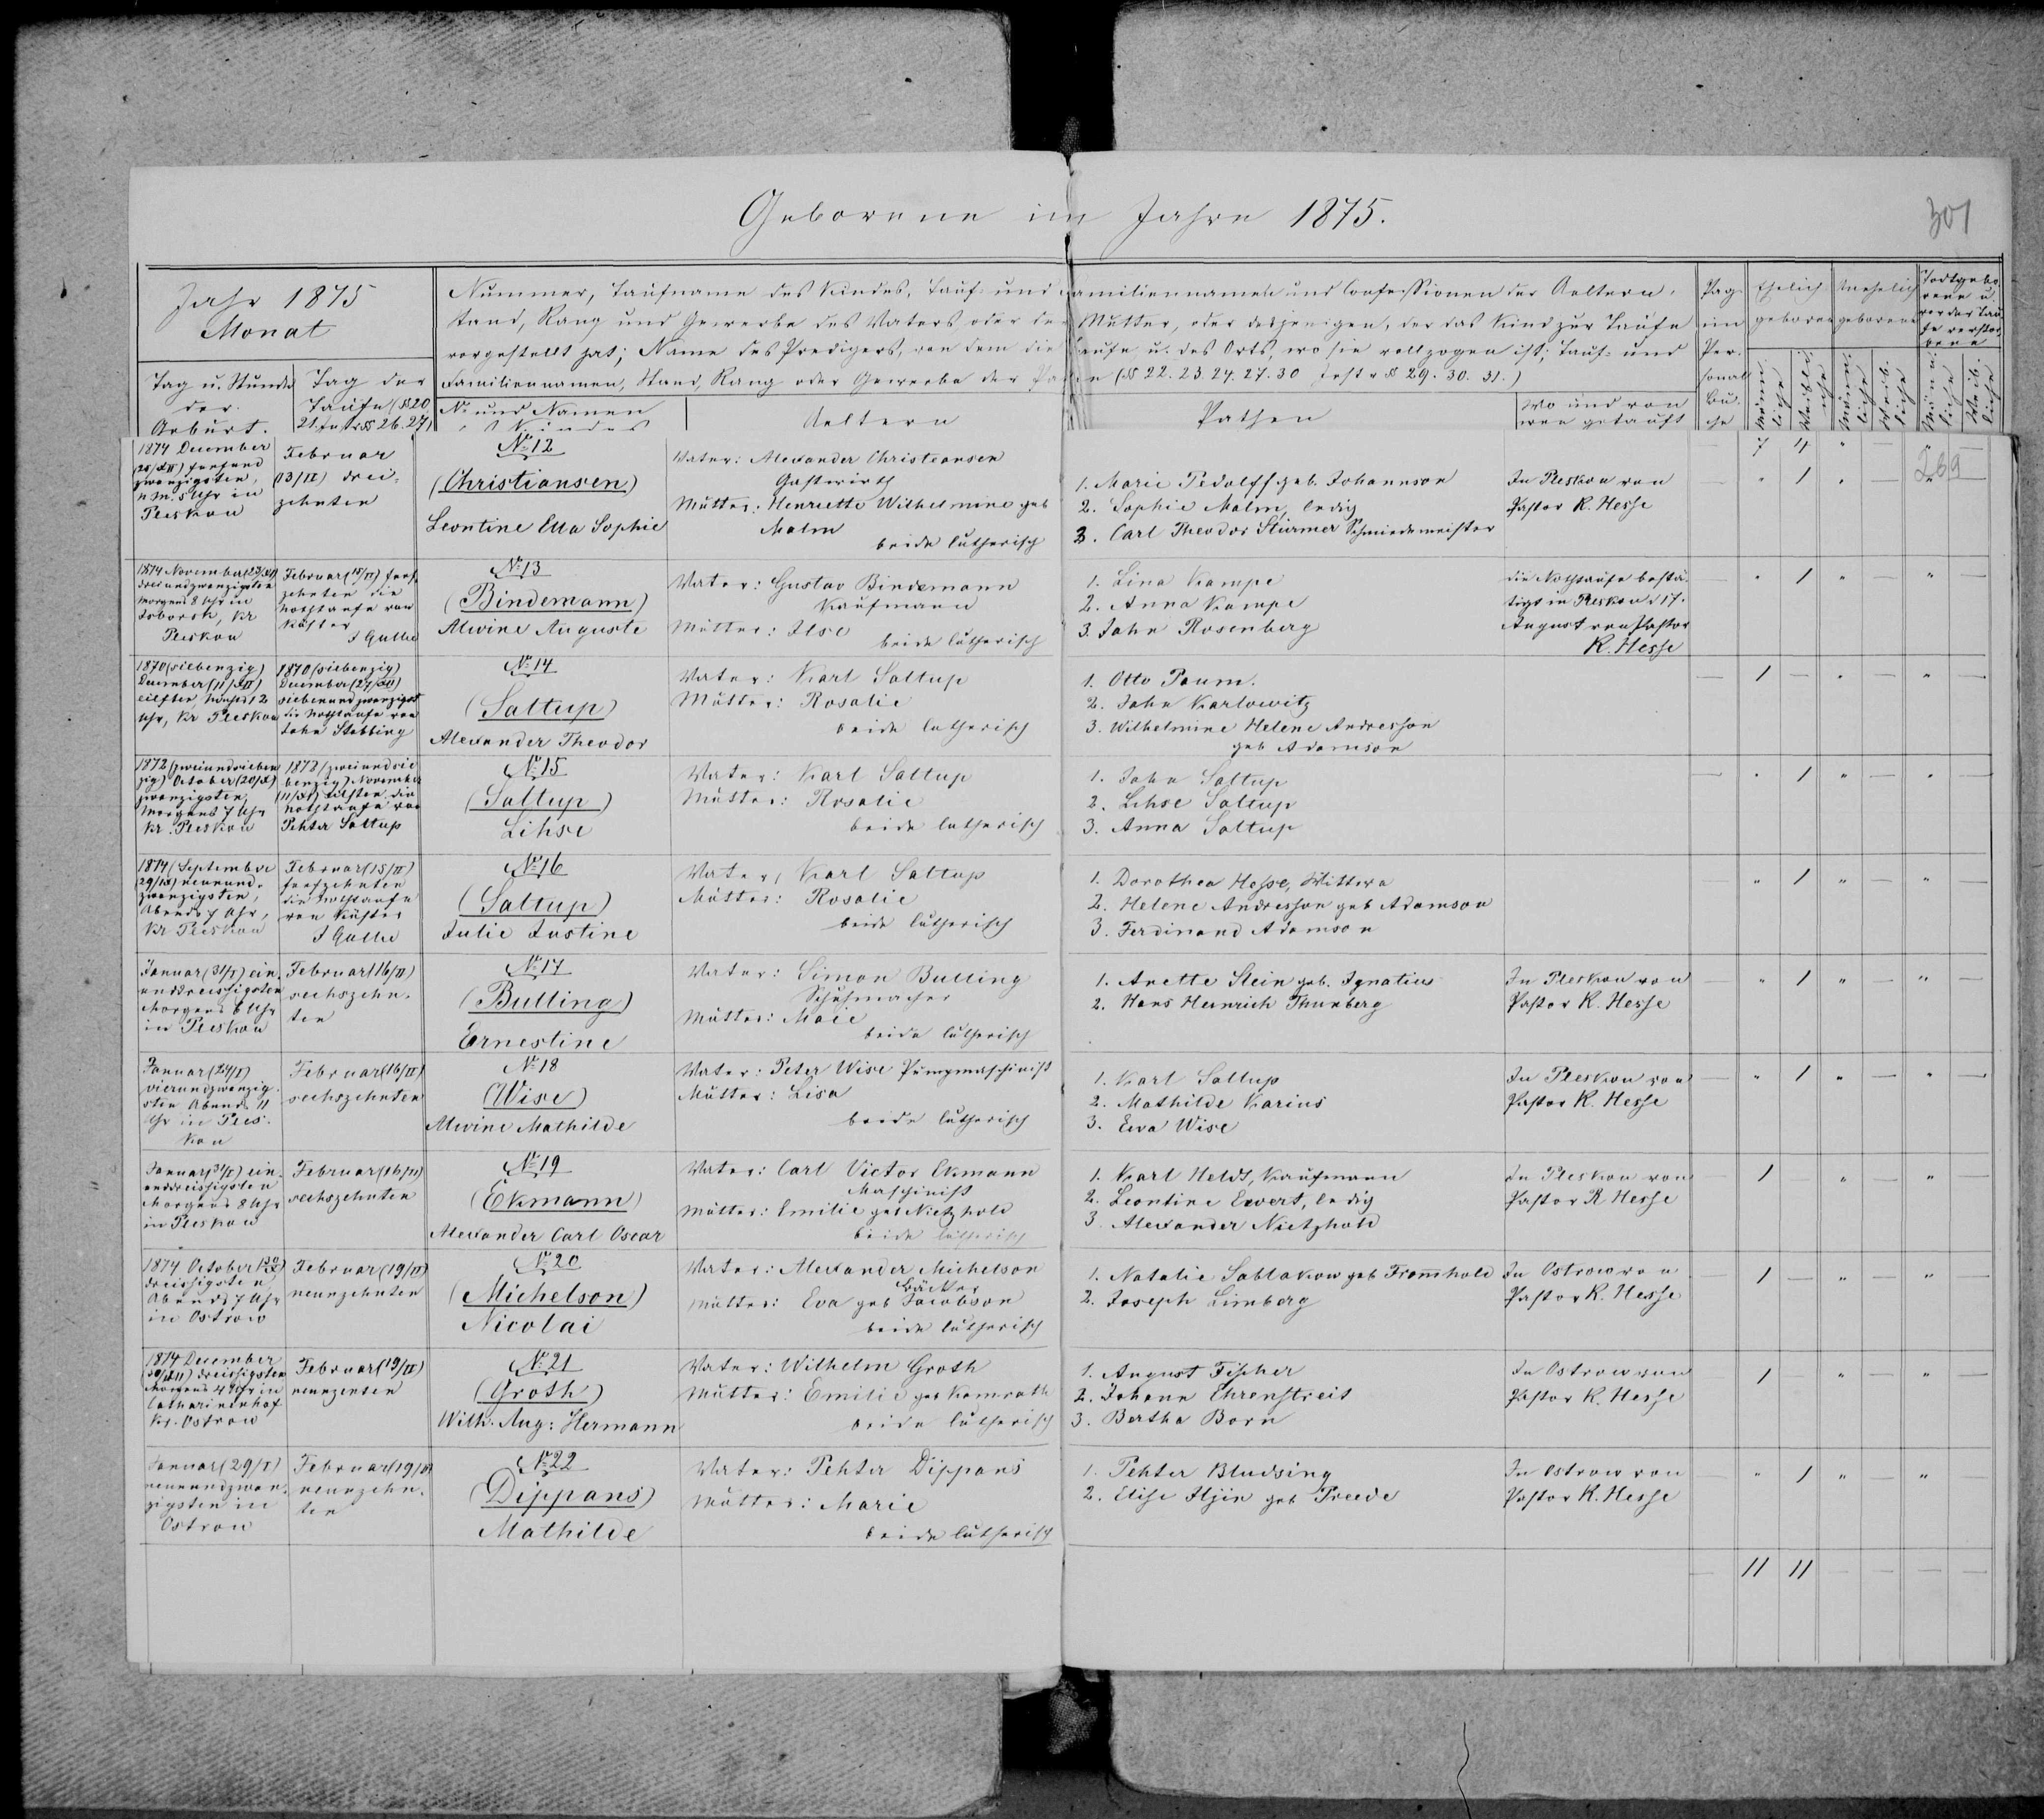 Geborene im Jahre 1875.
301
Jahr 1875
Monat
Tag u. Stunde
der
Geburt.
Tag der
Taufe (§§ 20
21. Instr §§ 26. 27)
Nummer, Taufname des Kindes, Tauf- und Familiennamen und Confessionen der Aeltern,
Stand, Rang und Gewerbe des Vaters oder der Mutter, oder desjenigen, der das Kind zur Taufe
vorgestellt hat; Name des Predigers, von dem die Taufe u. des Orts, wo sie vollzogen ist; Tauf- und
Familiennamen, Stand, Rang oder Gewerbe der Pathen (§§ 22. 23. 24. 27. 30 Instr §§ 29. 30. 31.)
No und Namen
Aeltern
Pathen
Wo und von
wem getauft
Pag.
im
Per-
sonal
Bu-
che
Ehelich
geboren
Unehelich
geborene
Todtgebo-
rene u.
vor der Tau-
fe verstor-
bene
Männ-
liche
Weibli-
che
Männ-
liche
Weib-
liche
Männ-
liche
Weib-
liche
1874 December
(25/XII) fünfund
zwanzigsten,
n M. 5 Uhr in
Pleskau
Februar
(13/II) drei-
zehnten
No 12
(Christiansen)
Leontine Ella Sophie
Vater: Alexander Christiansen
Gastwirth
Mutter: Henriette Wilhelmine geb
Malm
beide lutherisch
1. Marie Tidolff geb. Johannson
2. Sophie Malm, ledig
3. Carl Theodor Stürmer Schmiedemeister
In Pleskau von
Pastor K. Hesse
7 4
1
269
1874 November (23/XI)
dreiundzwanzigsten
Morgens 8 Uhr in
Isborsk, Kr
Pleskau
Februar (15/II) fünf-
zehnten die
Nothtaufe von
Küster
J Gulbe
No 13
(Bindemann)
Alwine Auguste
Vater: Gustav Bindemann
Kaufmann
Mutter: Ilse
beide lutherisch
1. Lina Kampe
2. Anna Kampe
3. Jahn Rosenberg
die Nothtaufe bestä-
tigt in Pleskau d 17.
August von Pastor
K. Hesse
1
1870 (siebenzig)
December (11/XII)
eilften, Nachts 12
Uhr, Kr Pleskau
1870 (siebenzig)
December (27/XII)
siebenundzwanzigst
die Nothtaufe von
Jahn Stabbing
No 14
(Saltup)
Alexander Theodor
Vater: Karl Saltup
Mutter: Rosalie
beide lutherisch
1. Otto Paum.
2. Jahn Karlowitz
3. Wilhelmine Helene Andresson
geb Adamson
1
1872 (zweiundsieben
zig) October (20/X)
zwanzigsten,
Morgens 7 Uhr
Kr. Pleskau
1872 (zweiundsie
benzig) November
(11/XI) eilften die
Nothtaufe von
Pehter Saltup
No 15
(Saltup)
Lihse
Vater: Karl Saltup
Mutter: Rosalie
beide lutherisch
1. Jahn Saltup
2. Lihse Saltup
3. Anna Saltup
1
1874 (September
(29/IX) neunund-
zwanzigsten,
Abends 7 Uhr,
Kr Pleskau
Februar (15/II)
fünfzehnten
die Nothtaufe
von Küster
J Gulbe
No 16
(Saltup)
Julie Justine
Vater: Karl Saltup
Mutter: Rosalie
beide lutherisch
1. Dorothea Hesse, Wittwe
2. Helene Andresson geb Adamson
3. Ferdinand Adamson
1
Januar (31/I) ein-
unddreissigsten
Morgens 6 Uhr
in Pleskau
Februar (16/II)
sechszehn-
ten
No 17
(Bulling)
Ernestine
Vater: Simon Bulling
Schuhmacher
Mutter: Maie
beide lutherisch
1. Anette Stein geb. Ignatius
2. Hans Heinrich Thunberg
In Pleskau von
Pastor K. Hesse
1
Januar (24/I)
vierundzwanzig-
sten Abends 11
Uhr in Ples-
kau
Februar (16/II)
sechszehnten
No 18
(Wise)
Alwine Mathilde
Vater: Peter Wise Pumpmaschinist
Mutter: Lisa
beide lutherisch
1. Karl Saltup
2. Mathilde Karius
3. Ewa Wise
In Pleskau von
Pastor K. Hesse
1
Januar (31/I) ein-
unddreissigsten
Morgens 8 Uhr
in Pleskau
Februar (16/II)
sechszehnten
No 19
(Ekmann)
Alexander Carl Oscar
Vater: Carl Victor Ekmann
Maschinist
Mutter: Emilie geb Nietzhold
beide lutherisch
1. Karl Heldt, Kaufmann
2. Leontine Ewert, ledig
3. Alexander Nietzhold
In Pleskau von
Pastor K Hesse
1
1874 October (30/X)
dreissigsten
Abends 7 Uhr
in Ostrow
Februar (19/II)
neunzehnten
No 20
(Michelson)
Nicolai
Vater: Alexander Michelson
Bäcker
Mutter: Eva geb Jacobson
beide lutherisch
1. Natalie Sablakow geb Frommhold
2. Joseph Limberg
In Ostrow von
Pastor K. Hesse
1
1874 December
(30/XII) dreissigsten
Morgens 4 Uhr in
Catharinenhof
Kr. Ostrow
Februar (19/II)
neunzenten
No 21
(Groth)
Wilh. Aug: Hermann
Vater: Wilhelm Groth
Mutter: Emilie geb Kamrath
beide lutherisch
1. August Fischer
2. Johann Ehrenstreit
3. Bertha Born
In Ostrow von
Pastor K. Hesse
1
Januar (29/I)
neunundzwan-
zigsten in
Ostrow
Februar (19/II)
neunzehn-
ten
No 22
(Dippans)
Mathilde
Vater: Pehter Dippans
Mutter: Marie
beide lutherisch
1. Pehter Bludsing
2. Elise Iljin geb Preede
In Ostrow von
Pastor K. Hesse
1
11 11